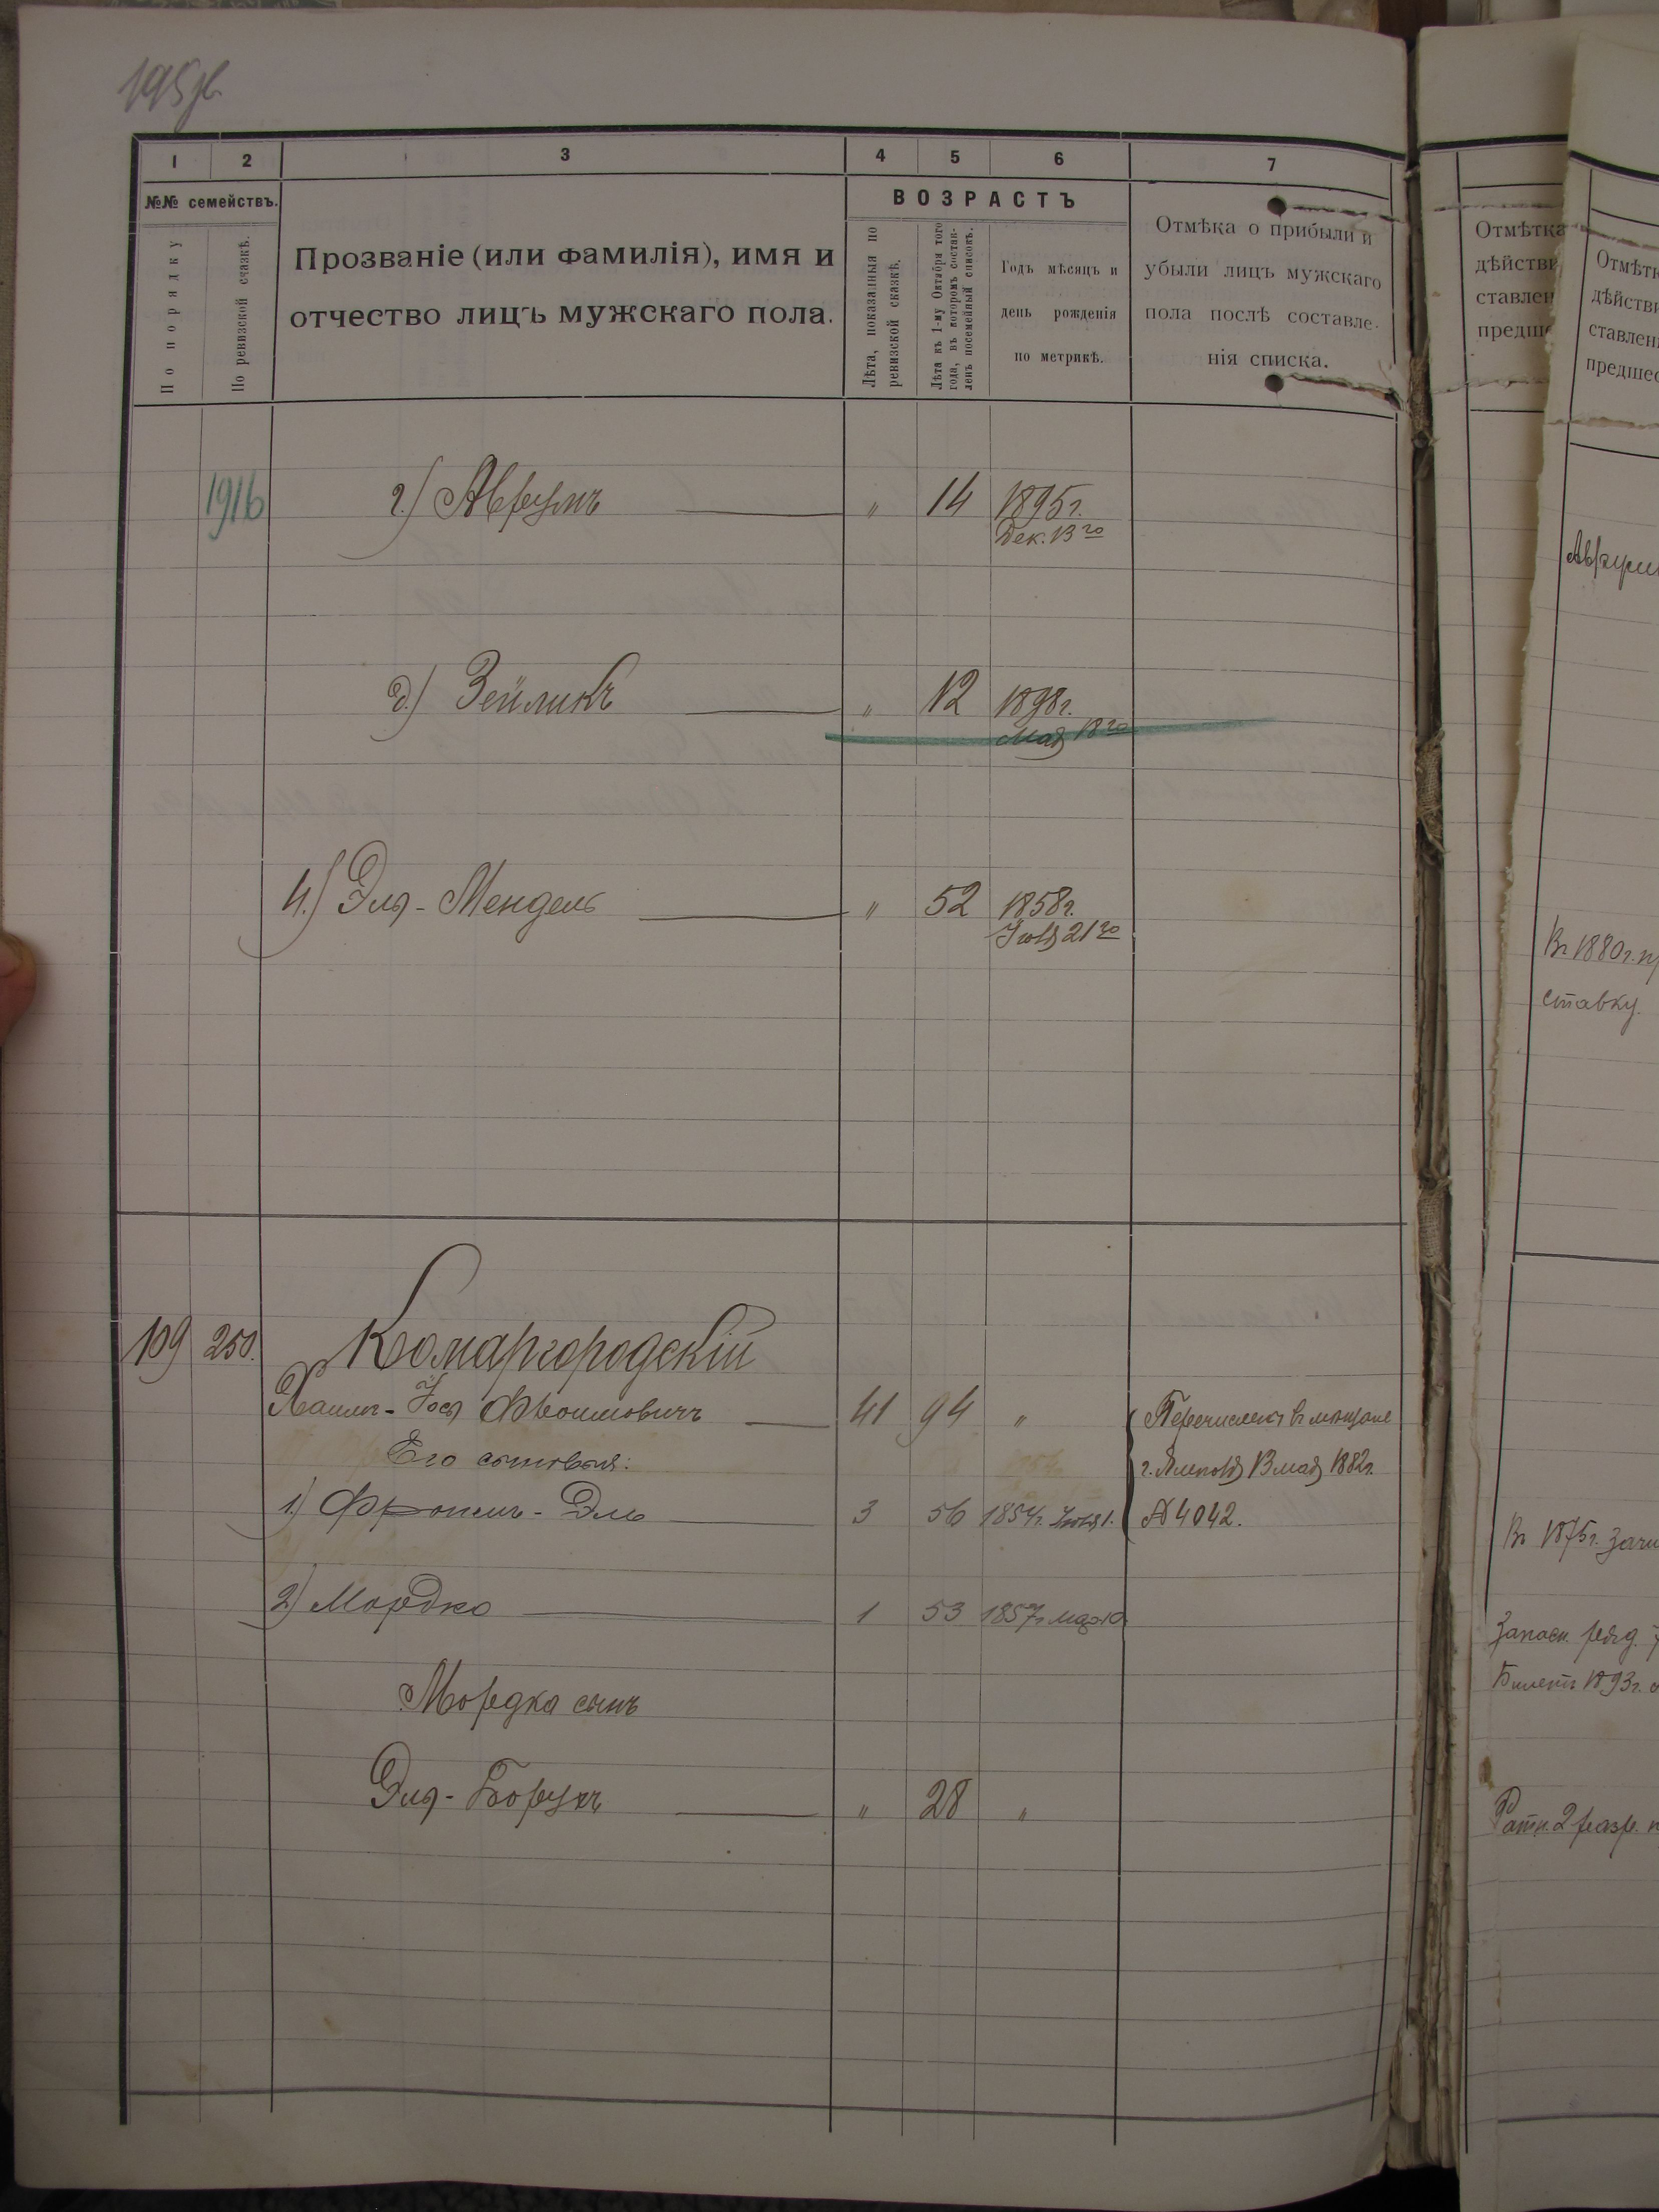 1 2 3 4 5 6 7
№№ семействъ.
По порядку
По ревизской сказкѣ.
Прозваніе (или фамилія), имя и
отчество лицъ мужскаго пола.
ВОЗРАСТЪ
Лѣта, показанныя по
ревизской сказкѣ.
Лѣта къ 1-му Октября того
года, въ которомъ состав-
ленъ посемейный списокъ.
Годъ мѣсяцъ и
день рожденія
по метрикѣ.
Отмѣка о прибыли и
убыли лицъ мужскаго
пола послѣ составле-
нія списка.
Отмѣтка
дѣйстви
ставлен
предше
Отмѣтк
дѣйстви
ставлені
предшес
1916 г.) Аврумъ " 14 1895г.
Дек. 13го
д.) Зейликъ " 12 1898г.
Мая 18го
4.) Эля-Мендель " 52 1858г.
Іюля 21го
Въ 1880г. пр
ставку.
109 250. Комаргородскій
Хаимъ-Іося Фроимовичъ 41 94 " Перечисленъ въ мѣщане
Его сыновья: 13 мая 1882г.
1) Фроимъ-Эль 3 56 1854г. Іюля 1. № 4042.
Въ 1875г. зачи
2) Мордко 1 53 1857г. мая 10.
Запасн. ряд.
Билетъ 1893г.
Мордка сынъ
Эля-Борухъ " 28 "
Ратн. 2 разр.